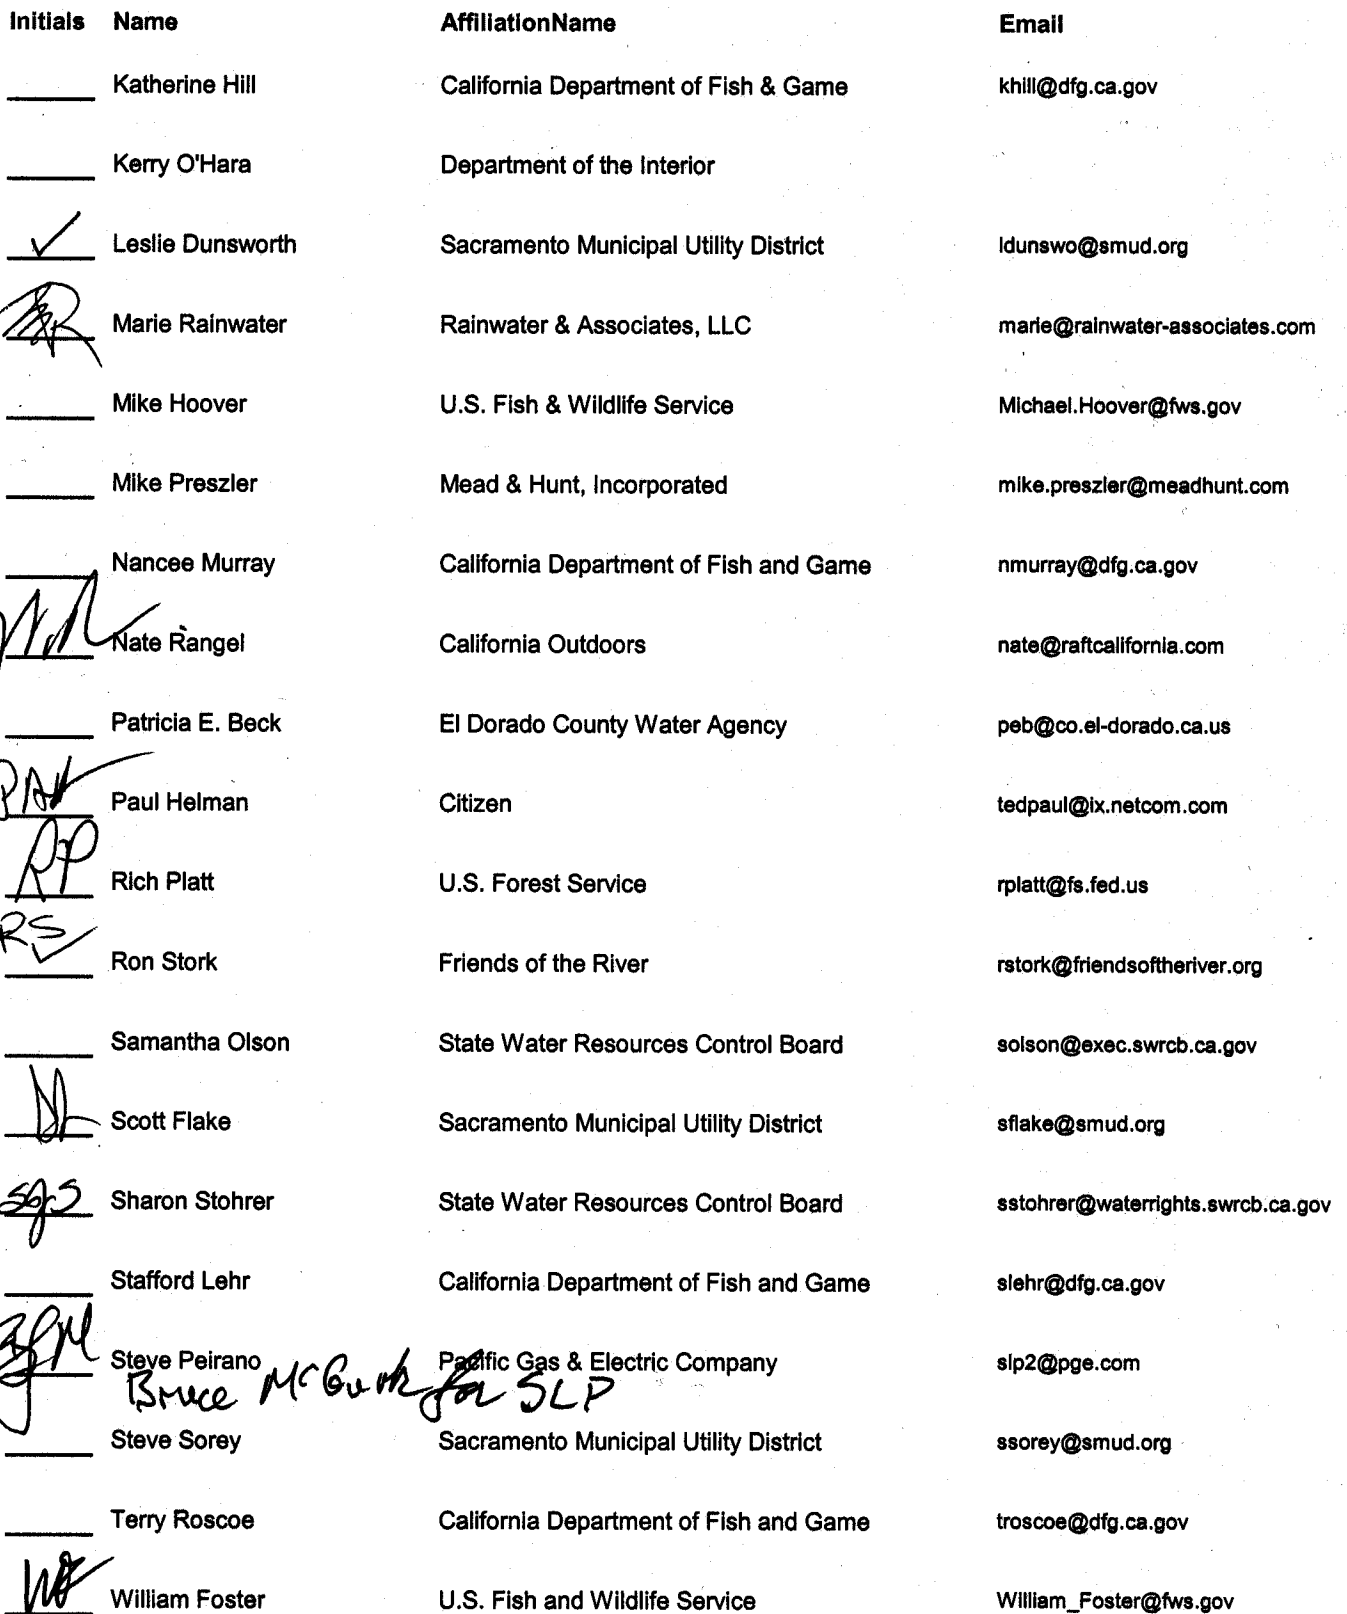 Initials Name AffiliationName Email
Katherine Hill California Department of Fish & Game khill@dfg.ca.gov
Kerry O'Hara Department of the Interior
✓ Leslie Dunsworth Sacramento Municipal Utility District ldunswo@smud.org
Marie Rainwater Rainwater & Associates, LLC marie@rainwater-associates.com
Mike Hoover U.S. Fish & Wildlife Service Michael.Hoover@fws.gov
Mike Preszler Mead & Hunt, Incorporated mike.preszler@meadhunt.com
Nancee Murray California Department of Fish and Game nmurray@dfg.ca.gov
Nate Rangel California Outdoors nate@raftcalifornia.com
Patricia E. Beck El Dorado County Water Agency peb@co.el-dorado.ca.us
PAH Paul Helman Citizen tedpaul@ix.netcom.com
RP Rich Platt U.S. Forest Service rplatt@fs.fed.us
RS ✓ Ron Stork Friends of the River rstork@friendsoftheriver.org
Samantha Olson State Water Resources Control Board solson@exec.swrcb.ca.gov
Scott Flake Sacramento Municipal Utility District sflake@smud.org
SGS Sharon Stohrer State Water Resources Control Board sstohrer@waterrights.swrcb.ca.gov
Stafford Lehr California Department of Fish and Game slehr@dfg.ca.gov
BJM Steve Peirano Pacific Gas & Electric Company slp2@pge.com
Bruce McGurk for SLP
Steve Sorey Sacramento Municipal Utility District ssorey@smud.org
Terry Roscoe California Department of Fish and Game troscoe@dfg.ca.gov
WF William Foster U.S. Fish and Wildlife Service William_Foster@fws.gov